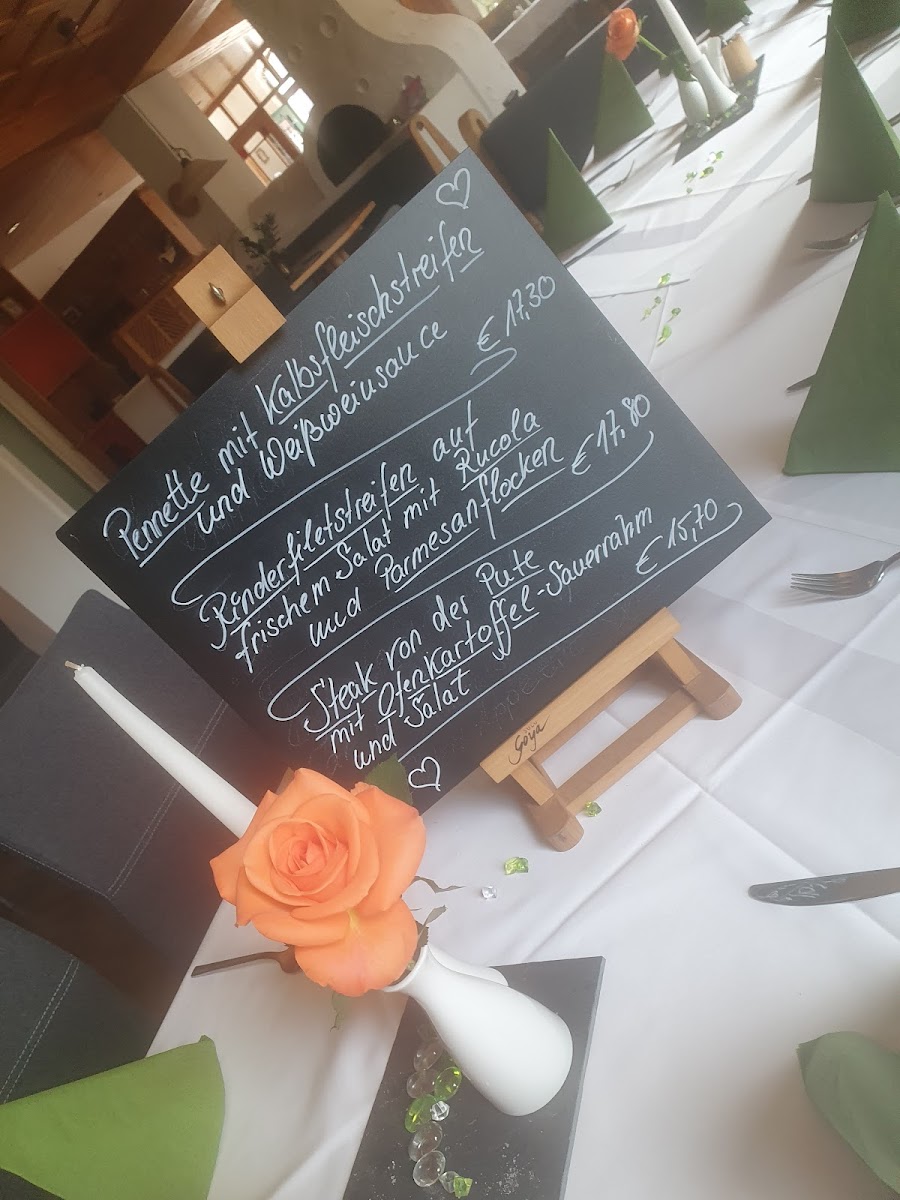 Pennette mit Kalbsfleischstreifen
und Weißweinsauce € 17,30
Rinderfiletstreifen auf
frischem Salat mit Rucola
und Parmesanflocken € 17,80
Steak von der Pute
mit Ofenkartoffel-Sauerrahm
und Salat € 15,70
Goya